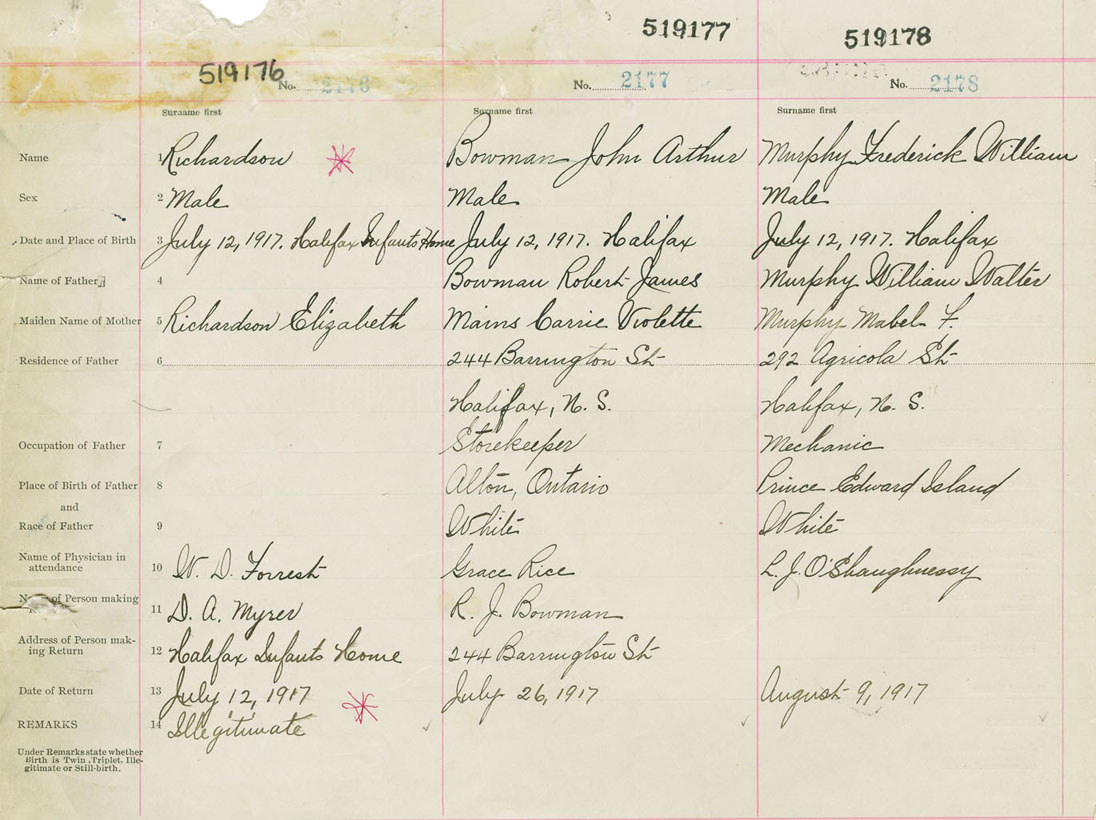 519176 519177 519178
No. 2176 No. 2177 No. 2178
Surname first Surname first Surname first
Name 1 Richardson Bowman John Arthur Murphy Frederick William
Sex 2 Male Male Male
Date and Place of Birth 3 July 12, 1917. Halifax Infants Home July 12, 1917. Halifax July 12, 1917. Halifax
Name of Father 4 Bowman Robert James Murphy William Walter
Maiden Name of Mother 5 Richardson Elizabeth Mains Carrie Violette Murphy Mabel F.
Residence of Father 6 244 Barrington St 292 Agricola St
Halifax, N. S. Halifax, N. S.
Occupation of Father 7 Storekeeper Mechanic
Place of Birth of Father 8 Alton, Ontario Prince Edward Island
and
Race of Father 9 White White
Name of Physician in
attendance 10 W. D. Forrest Grace Rice L. J. O'Shaughnessy
Name of Person making
11 D. A. Myrer R. J. Bowman
Address of Person mak-
ing Return 12 Halifax Infants Home 244 Barrington St
Date of Return 13 July 12, 1917 July 26, 1917 August 9, 1917
REMARKS 14 Illegitimate
Under Remarks state whether
Birth is Twin, Triplet, Ille-
gitimate or Still-birth.